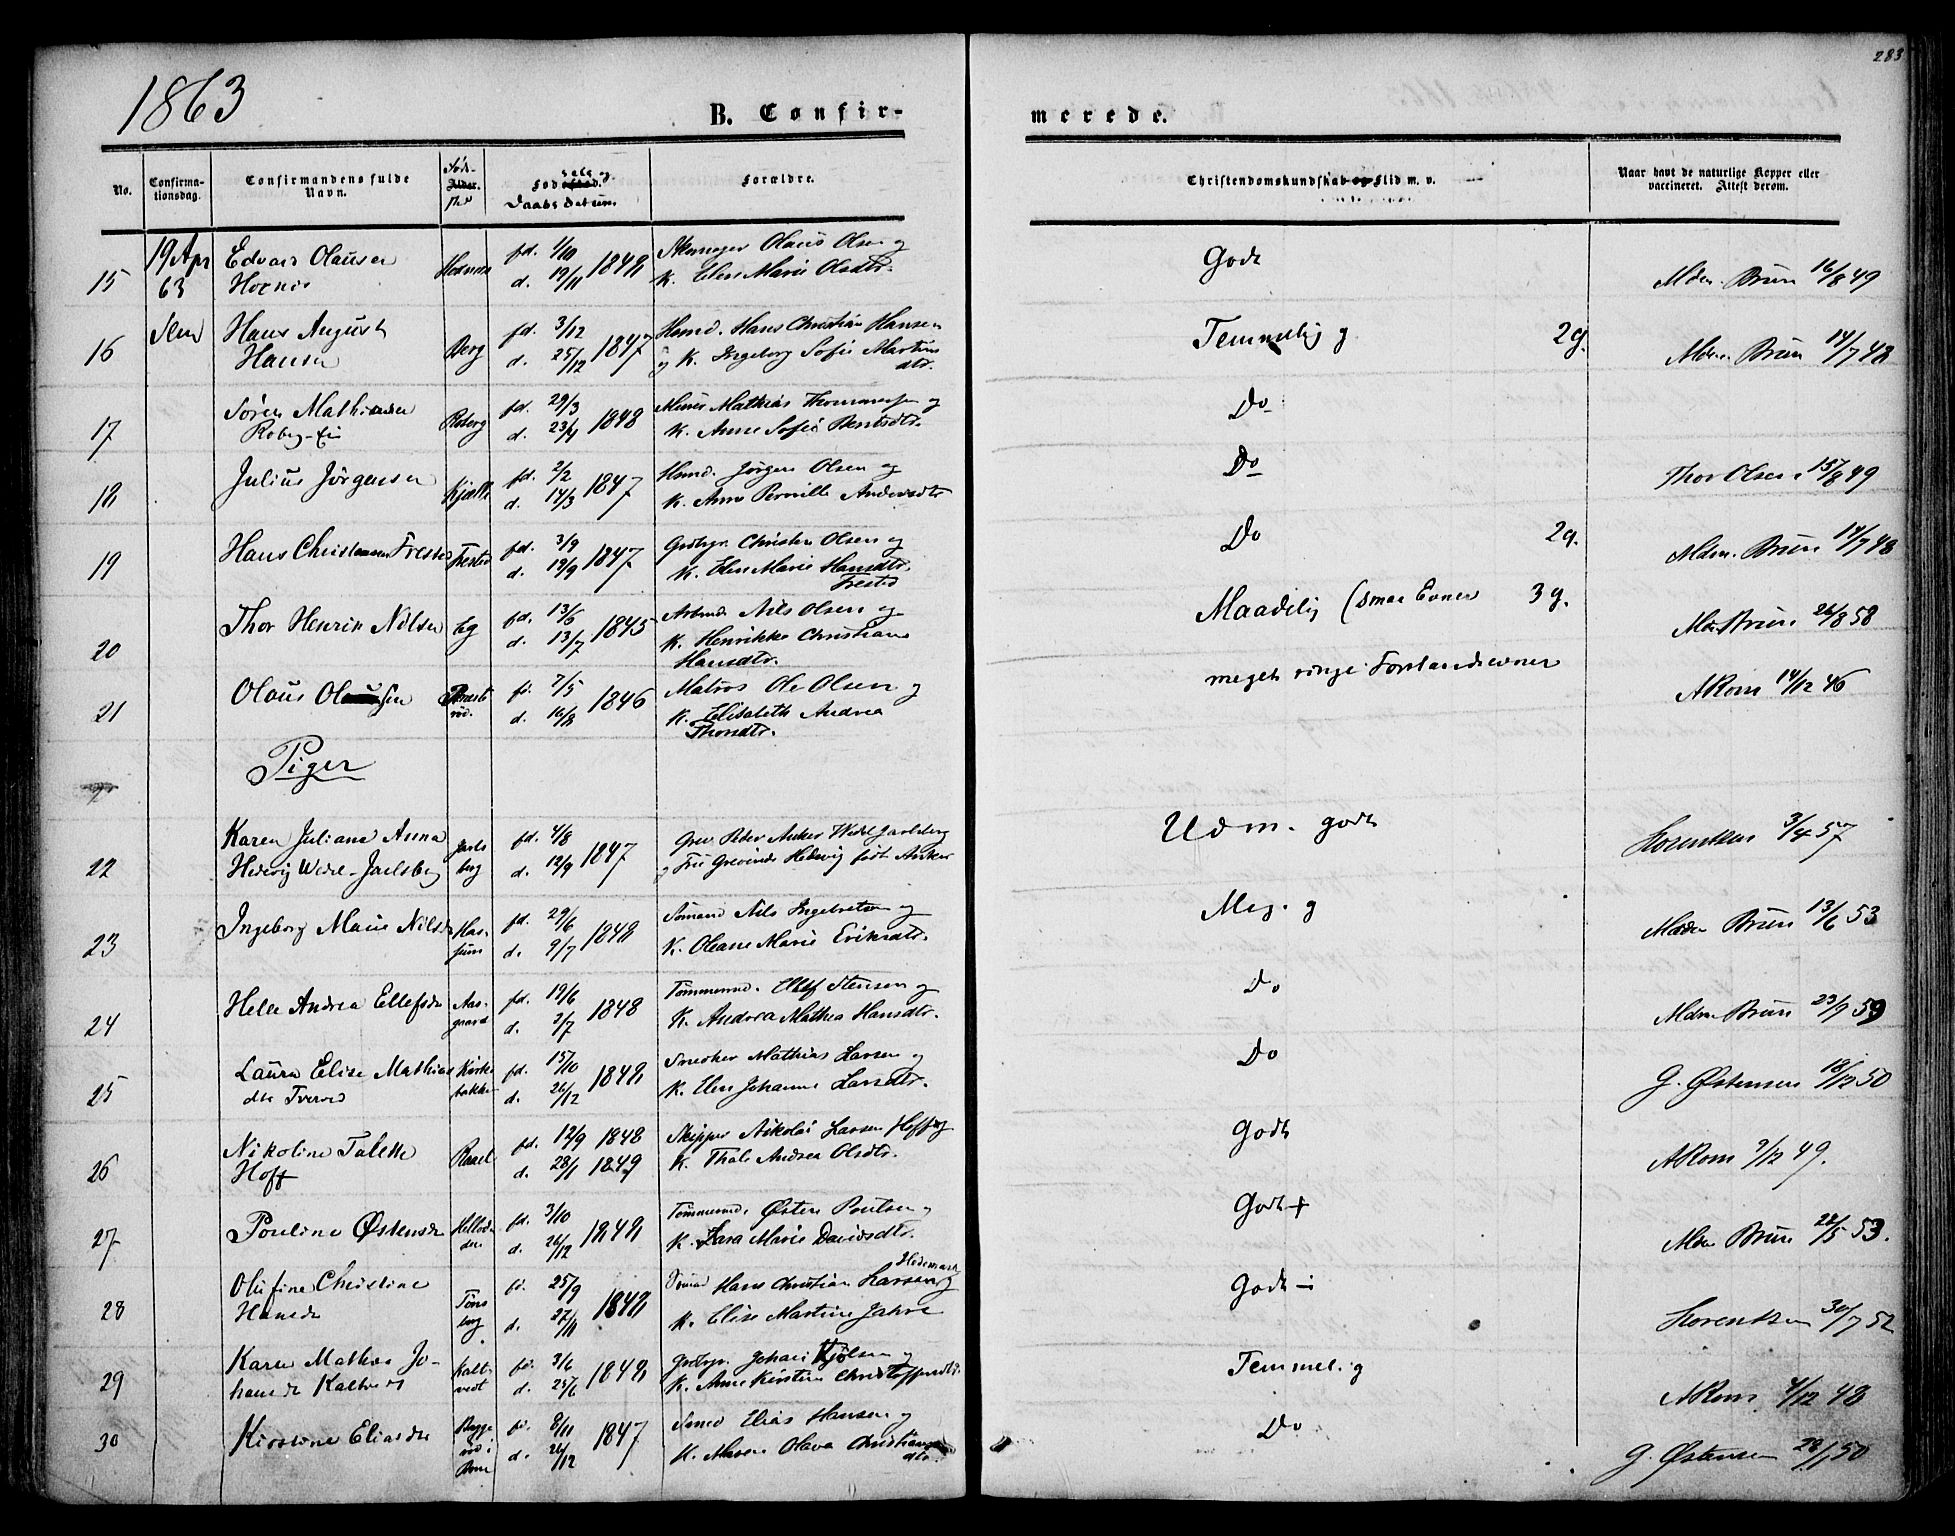 283
1863
B. Confirmerede.
No.
Confirmationsdag.
Confirmandens fulde Navn.
Føde-
Alder.
Sted
Fødsels og
Daabs Datum
Forældre.
Christendomskundskab og Flid m. v.
Naar havt de naturlige Kopper eller vaccineret. Attest derom.
15 19 Apr 63 Edvard Olausen fd. 1/10 1848 Olaus Olsen og Godt Mdm. Brun 16/8 49
Hornes d. 19/11 K. Elen Marie Olsdtr.
16 Hans August Berg fd. 3/12 1847 Hsmd. Hans Christian Hansen Temmelig g 2g. Mdm. Brun 14/7 48
Hansen d. 25/12 og K. Ingeborg Sofie Martins
dtr.
17 Søren Roberg fd. 29/3 1848 Mathias og Do
d. 23/4 K. Anne Sofie Berntsdtr.
18 Julius Jørgensen fd. 2/2 1847 Hsmd. Jørgen Olsen og Do Thor Olsen 15/8 49
d. 14/3 K. Anne Pernille Andersdtr
19 Hans Christensen Frested Frested fd. 3/9 1847 Grdbgr. Christen Olsen og Do 2g. Mdm. Brun 14/7 48
d. 19/9 K. Elen Marie Hansdtr.
Frested
20 Thor Henrik Nilsen Eg fd. 13/6 1845 Nils Olsen og Maadelig (smaa Evner 3g. Mdm Brun 26/8 58
d. 13/7 K. Henrikke Christiane
Hansdtr.
21 Olaus Olsen fd. 7/5 1846 Matros Ole Olsen og meget ringe Forstandsevner A Rom 14/12 46
d. 16/8 K. Elisabeth Andrea
Thorsdtr.
Piger
22 Karen Juliane Anna Jarls fd. 4/8 1847 Grev Peder Anker Wedel Jarlsberg Udm. godt Lorentzen 3/4 57
Hedevig Wedel-Jarlsberg berg d. 12/9 og Fru Grevinde Hedevig født Anker
23 Ingeborg Marie Nilsd fd. 29/6 1848 Sømand Nils Ingebretsen og Meg. g Mdm Brun 13/6 53
d. 9/7 K. Oleane Marie Eriksdtr.
24 Helle Andrea Ellefsdr Aas- fd. 19/6 1848 Tømmermd. Ellef Stensen og Do Mdm Brun 23/9 59
gaard d. 2/7 K. Andrea Mathea Hansdtr.
25 Laura Elise Mathias Kirke fd. 15/10 1848 Snedker Mathias Larsen og Do G. Østensen 18/12 50
dtr Tvered bakken d. 26/12 K. Elen Johanne Larsdtr.
26 Nikoline Talette Rael fd. 12/9 1848 Skipper Nikolai Larsen Hoff og Godt A Rom 9/12 49.
Hoff d. 28/1 1849 K. Thale Andrea Olsdtr.
27 Pouline Østensdr fd. 3/10 1848 Tømmermd. Østen Poulsen og Godt + Mdm Brun 28/5 53.
d. 26/12 K. Sara Marie Davidsdtr.
28 Olufine Christine Tøns fd. 25/9 1848 Sømand Hans Christian Larsen Hedemark og Godt - Lorentzen 30/7 52
Hansdr berg d. 27/11 K. Elise Martine Jahre
29 Karen Mathea Jo- Kalt fd. 3/6 1848 Grdbgr. Johan Kjølsen og Temmel. g A Rom 4/12 48
hansdr Kaltvedt vedt d. 25/6 K. Anne Kirstine Christoffersdtr.
30 Kirstine Eliasdr fd. 8/11 1847 Smed Elias Hansen og Do G. Østensen 28/1 50
d. 26/12 K. Maren Olava Christians
dtr.